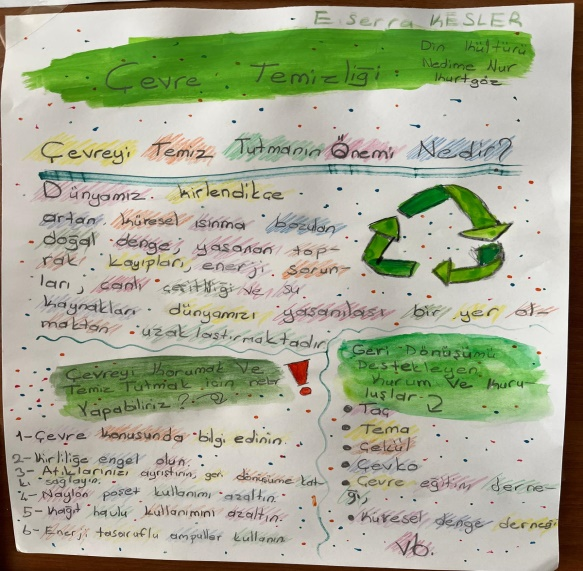 E. Serra KESLER
Çevre Temizliği
Din Kültürü
Nedime Nur
Kurtgöz
Çevreyi Temiz Tutmanın Önemi Nedir?
Dünyamız kirlendikçe
artan küresel ısınma bozulan
doğal denge, yaşanan top-
rak kayıpları, enerji sorun-
ları, canlı çeşitliği ve su
kaynakları dünyamızı yaşanılası bir yer ol-
maktan uzaklaştırmaktadır
Çevreyi Korumak Ve
Temiz Tutmak için neler
Yapabiliriz?
!
1-Çevre konusunda bilgi edinin.
2-Kirliliğe engel olun.
3- Atıklarınızı ayrıştırın, geri dönüşüme kat-
kı sağlayın.
4- Naylon poşet kullanımı azaltın.
5- Kağıt havlu kullanımını azaltın.
6- Enerji tasaruflu ampuller kullanın
Geri Dönüşümü
Destekleyen
Kurum Ve Kuru-
luşlar
• Taç
• Tema
• Çekül
• Çevko
• Çevre eğitim derne-
ği,
• Küresel denge derneği
vb.